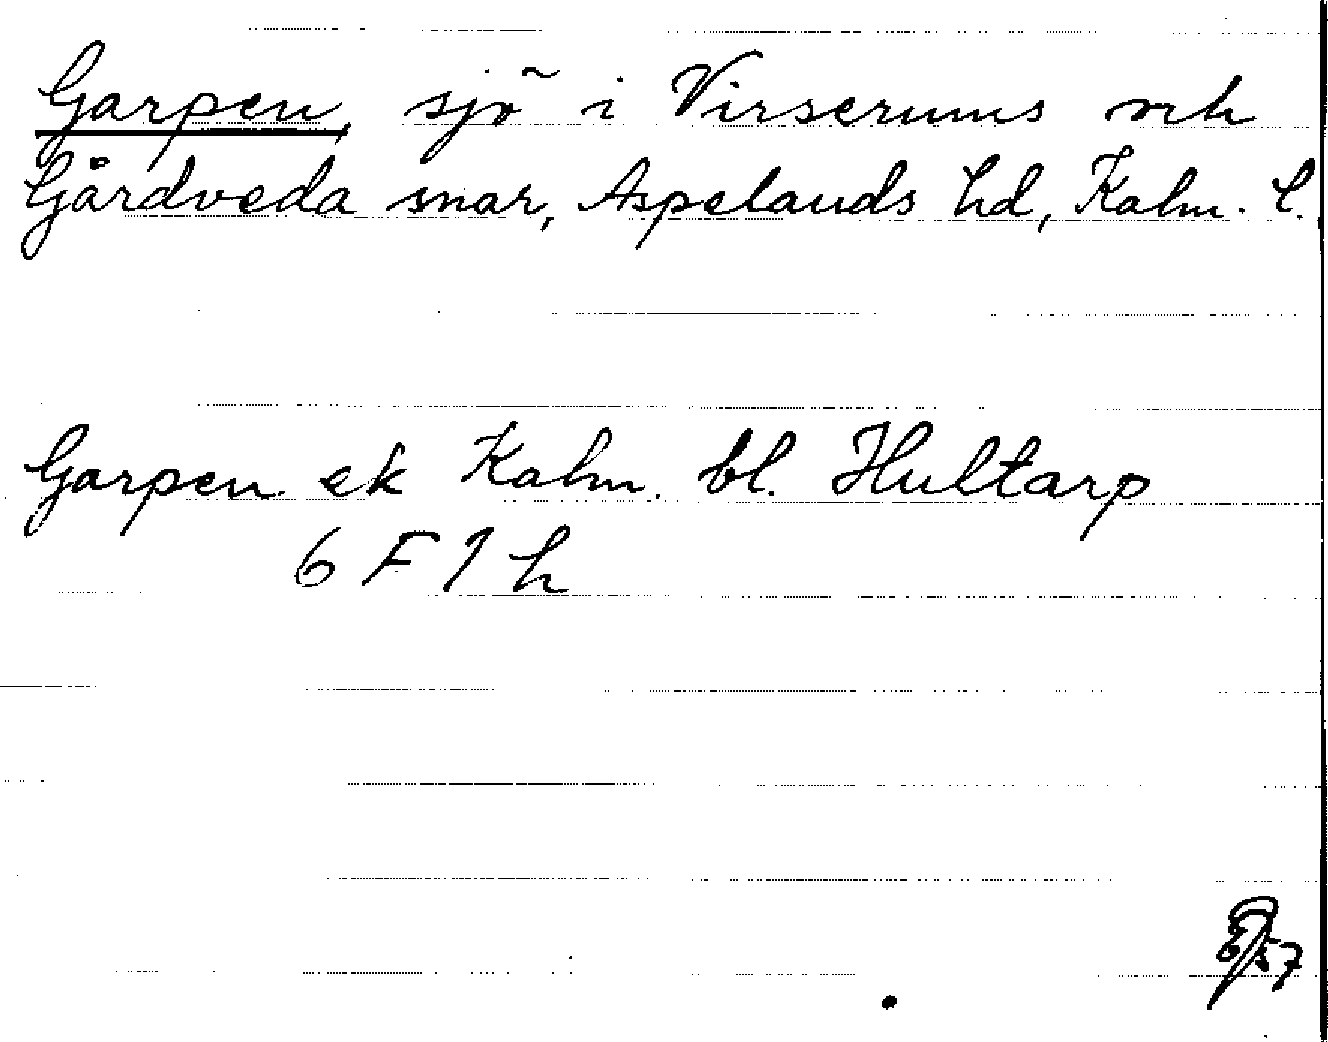 Garpen, sjö i Virserums och
Gårdveda snar, Aspelands hd, Kalm. l.
Garpen ek Kalm. bl. Hultarp
6 F 1 h
57